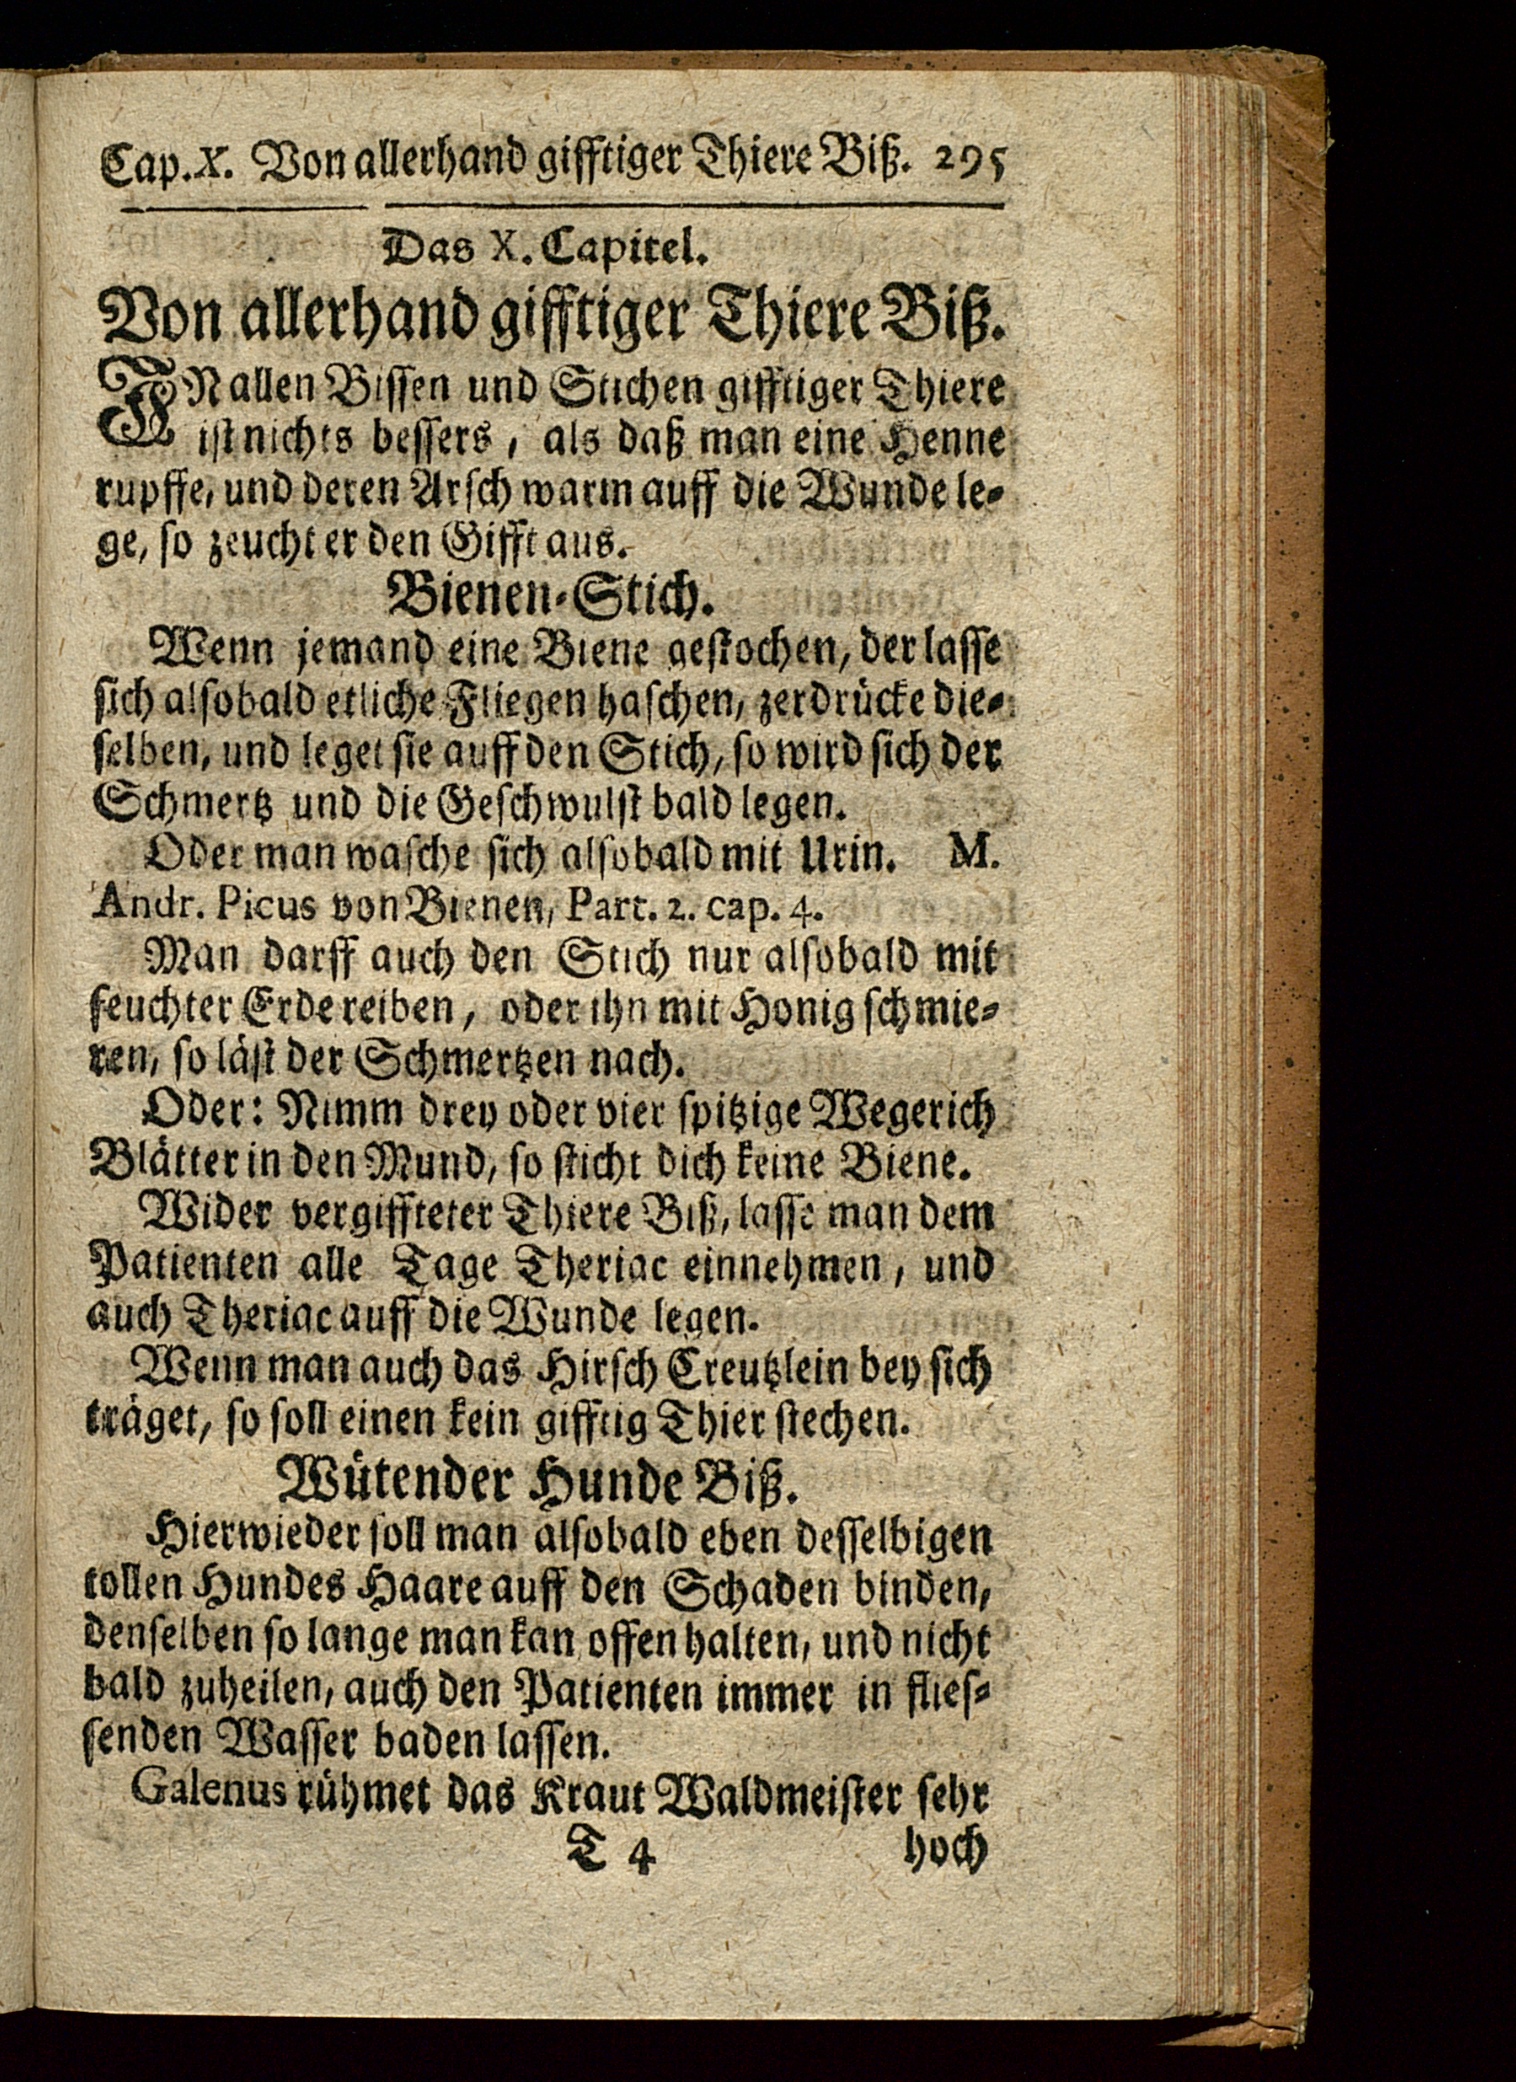 Cap. X. Von allerhand gifftiger Thiere Biß. 295
Das X. Capitel.
Von allerhand gifftiger Thiere Biß.
IN allen Bissen und Stichen gifftiger Thiere
ist nichts bessers, als daß man eine Henne
rupffe, und deren Arsch warm auff die Wunde le-
ge, so zeucht er den Gifft aus.
Bienen-Stich.
Wenn jemand eine Biene gestochen, der lasse
sich alsobald etliche Fliegen haschen, zerdrücke die-
selben, und leget sie auff den Stich, so wird sich der
Schmertz und die Geschwulst bald legen.
Oder man wasche sich alsobald mit Urin. M.
Andr. Picus von Bienen, Part. 2. cap. 4.
Man darff auch den Stich nur alsobald mit
feuchter Erde reiben, oder ihn mit Honig schmie-
ren, so läst der Schmertzen nach.
Oder: Nimm drey oder vier spitzige Wegerich
Blätter in den Mund, so sticht dich keine Biene.
Wider vergiffteter Thiere Biß, lasse man dem
Patienten alle Tage Theriac einnehmen, und
auch Theriac auff die Wunde legen.
Wenn man auch das Hirsch Creutzlein bey sich
träget, so soll einen kein gifftig Thier stechen.
Wütender Hunde Biß.
Hierwieder soll man alsobald eben desselbigen
tollen Hundes Haare auff den Schaden binden,
denselben so lange man kan offen halten, und nicht
bald zuheilen, auch den Patienten immer in flies-
senden Wasser baden lassen.
Galenus rühmet das Kraut Waldmeister sehr
T 4 hoch